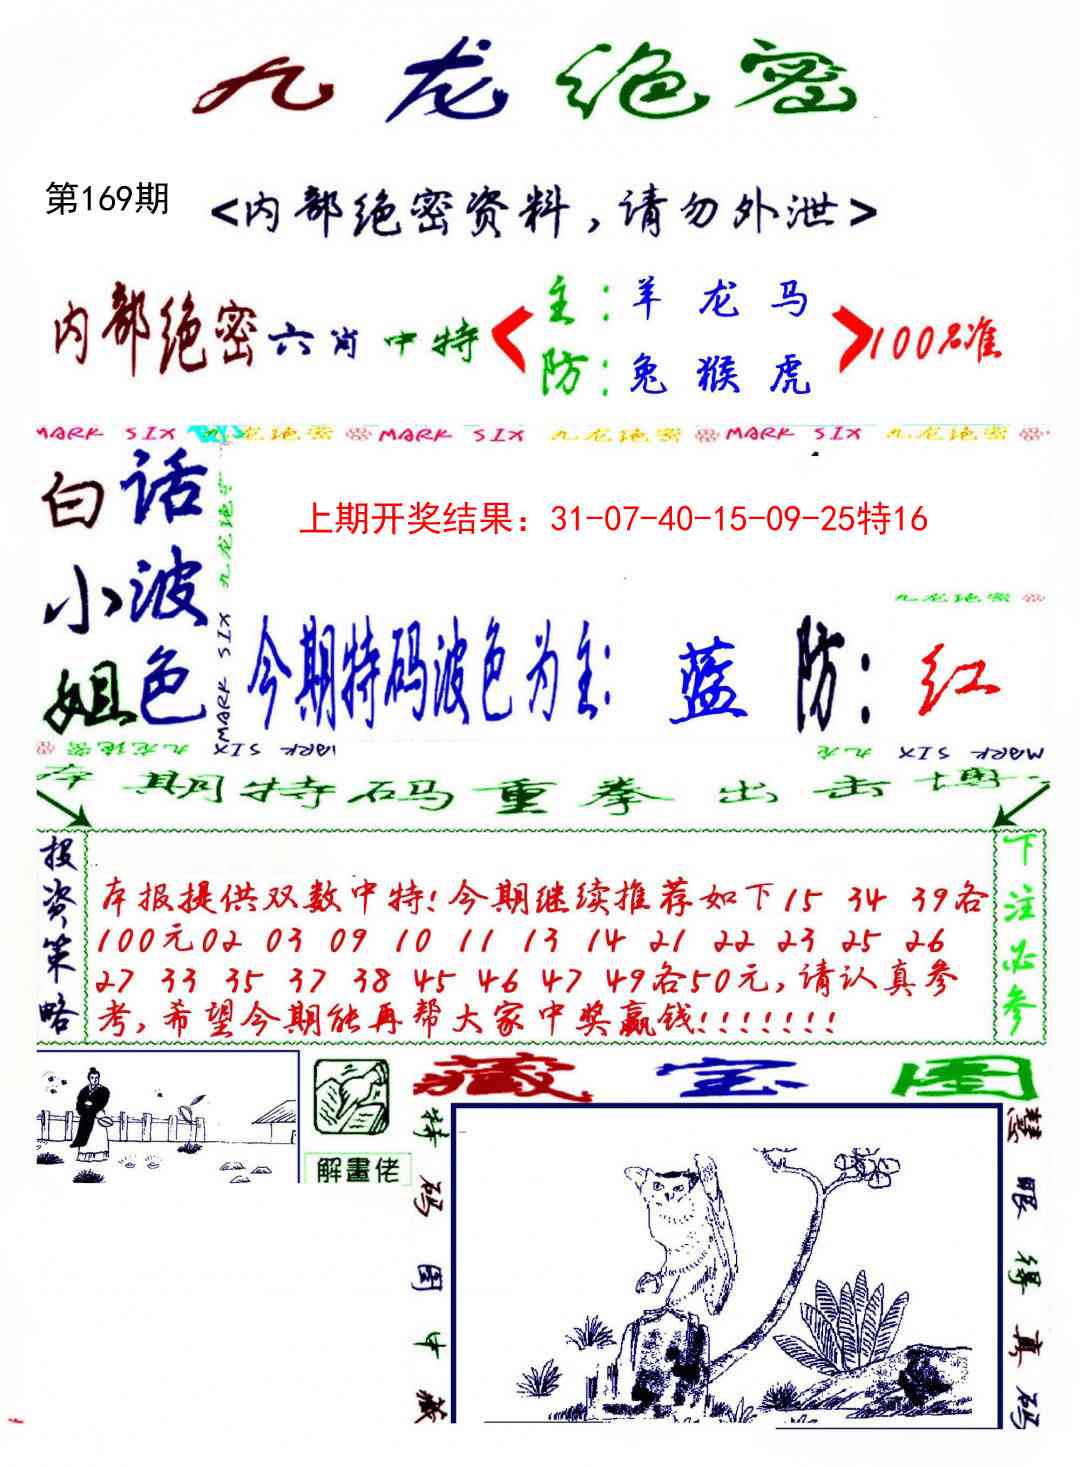 九龙绝密
第169期
<内部绝密资料,请勿外泄>
内部绝密六肖中特
主:羊龙马
防:兔猴虎
100%准
MARK SIX 九龙绝密 MARK SIX 九龙绝密 MARK SIX 九龙绝密
白话
小波
姐色
九龙绝密
MARK SIX
上期开奖结果：31-07-40-15-09-25特16
九龙绝密
今期特码波色为主: 蓝 防: 红
九龙绝密 MARK SIX MARK SIX 九龙 MARK SIX MARK SIX
本期特码重拳出击博
投资策略
本报提供双数中特!今期继续推荐如下15 34 39各
100元02 03 09 10 11 13 14 21 22 23 25 26
27 33 35 37 38 45 46 47 49各50元,请认真参
考,希望今期能再帮大家中奖赢钱!!!!!!!
下注必参
解畫佬
藏宝图
特码图中藏
慧眼得真码